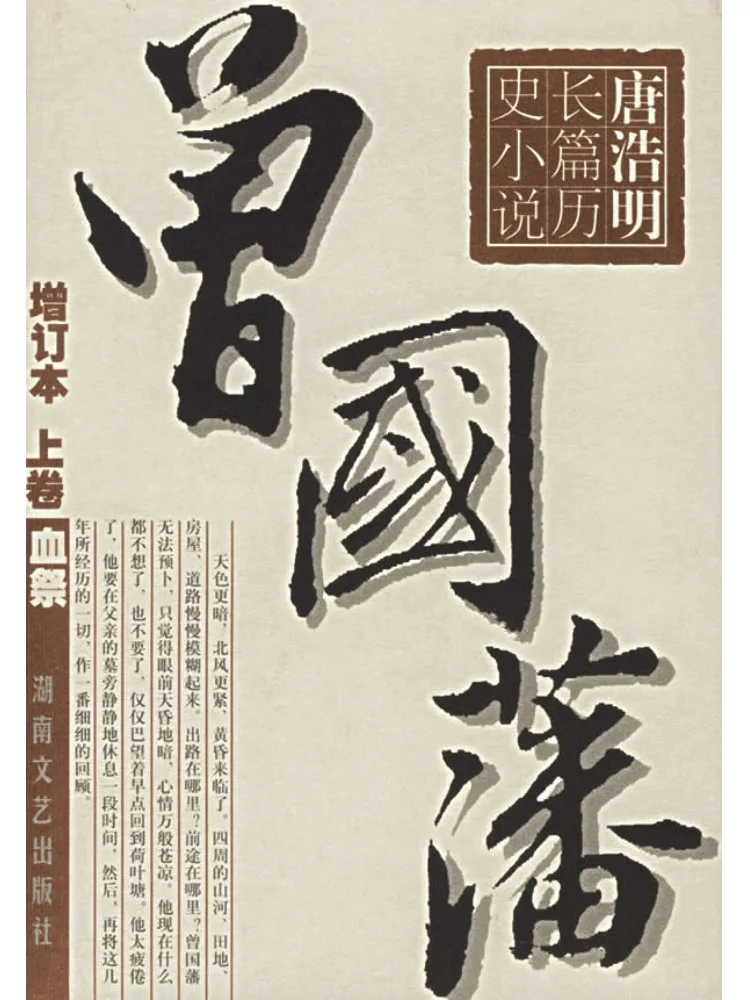 曾國藩
唐浩明
长篇历
史小说
增订本 上卷 血祭
湖南文艺出版社
天色更暗，北风更紧，黄昏来临了。四周的山河、田地、
房屋、道路慢慢模糊起来。出路在哪里？前途在哪里？曾国藩
无法预卜，只觉得眼前天昏地暗，心情万般苍凉。他现在什么
都不想了，也不要了，仅仅巴望着早点回到荷叶塘。他太疲倦
了，他要在父亲的墓旁静静地休息一段时间，然后，再将这几
年所经历的一切，作一番细细的回顾。